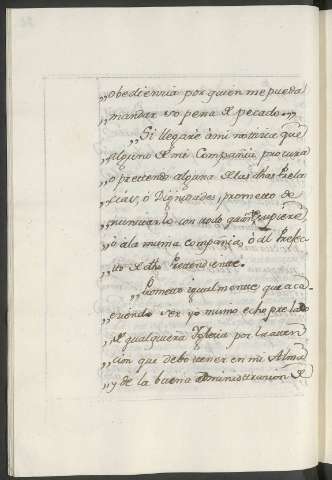 „obediencia por quien me pueda
„mandar so pena de pecado.„
„Si llegare à mi noticia que
„alguno de mi Compañia procura
„o prettende alguna de las dhas Prela
„cias, ò Dignidades, prometto de
„nunciarlo con ttodo qtto supiere
„ò à la misma compañia, ò al Prefec
„tto de dho Prettendiente.
„Prometto igualmentte que aca
„eciendo ser yo mismo echo prelado
„de qualquiera Yglesia por la atten
„cion que debo ttener en mi Alma
„y de la buena administracion de